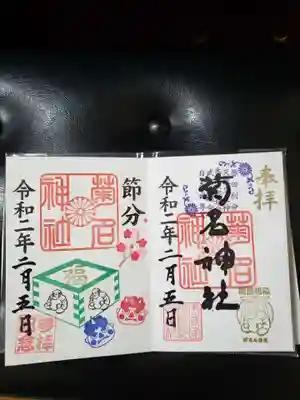 奉拝
菊名神社
菊名
神社
令和二年二月五日
節分
菊名
神社
福
令和二年二月五日